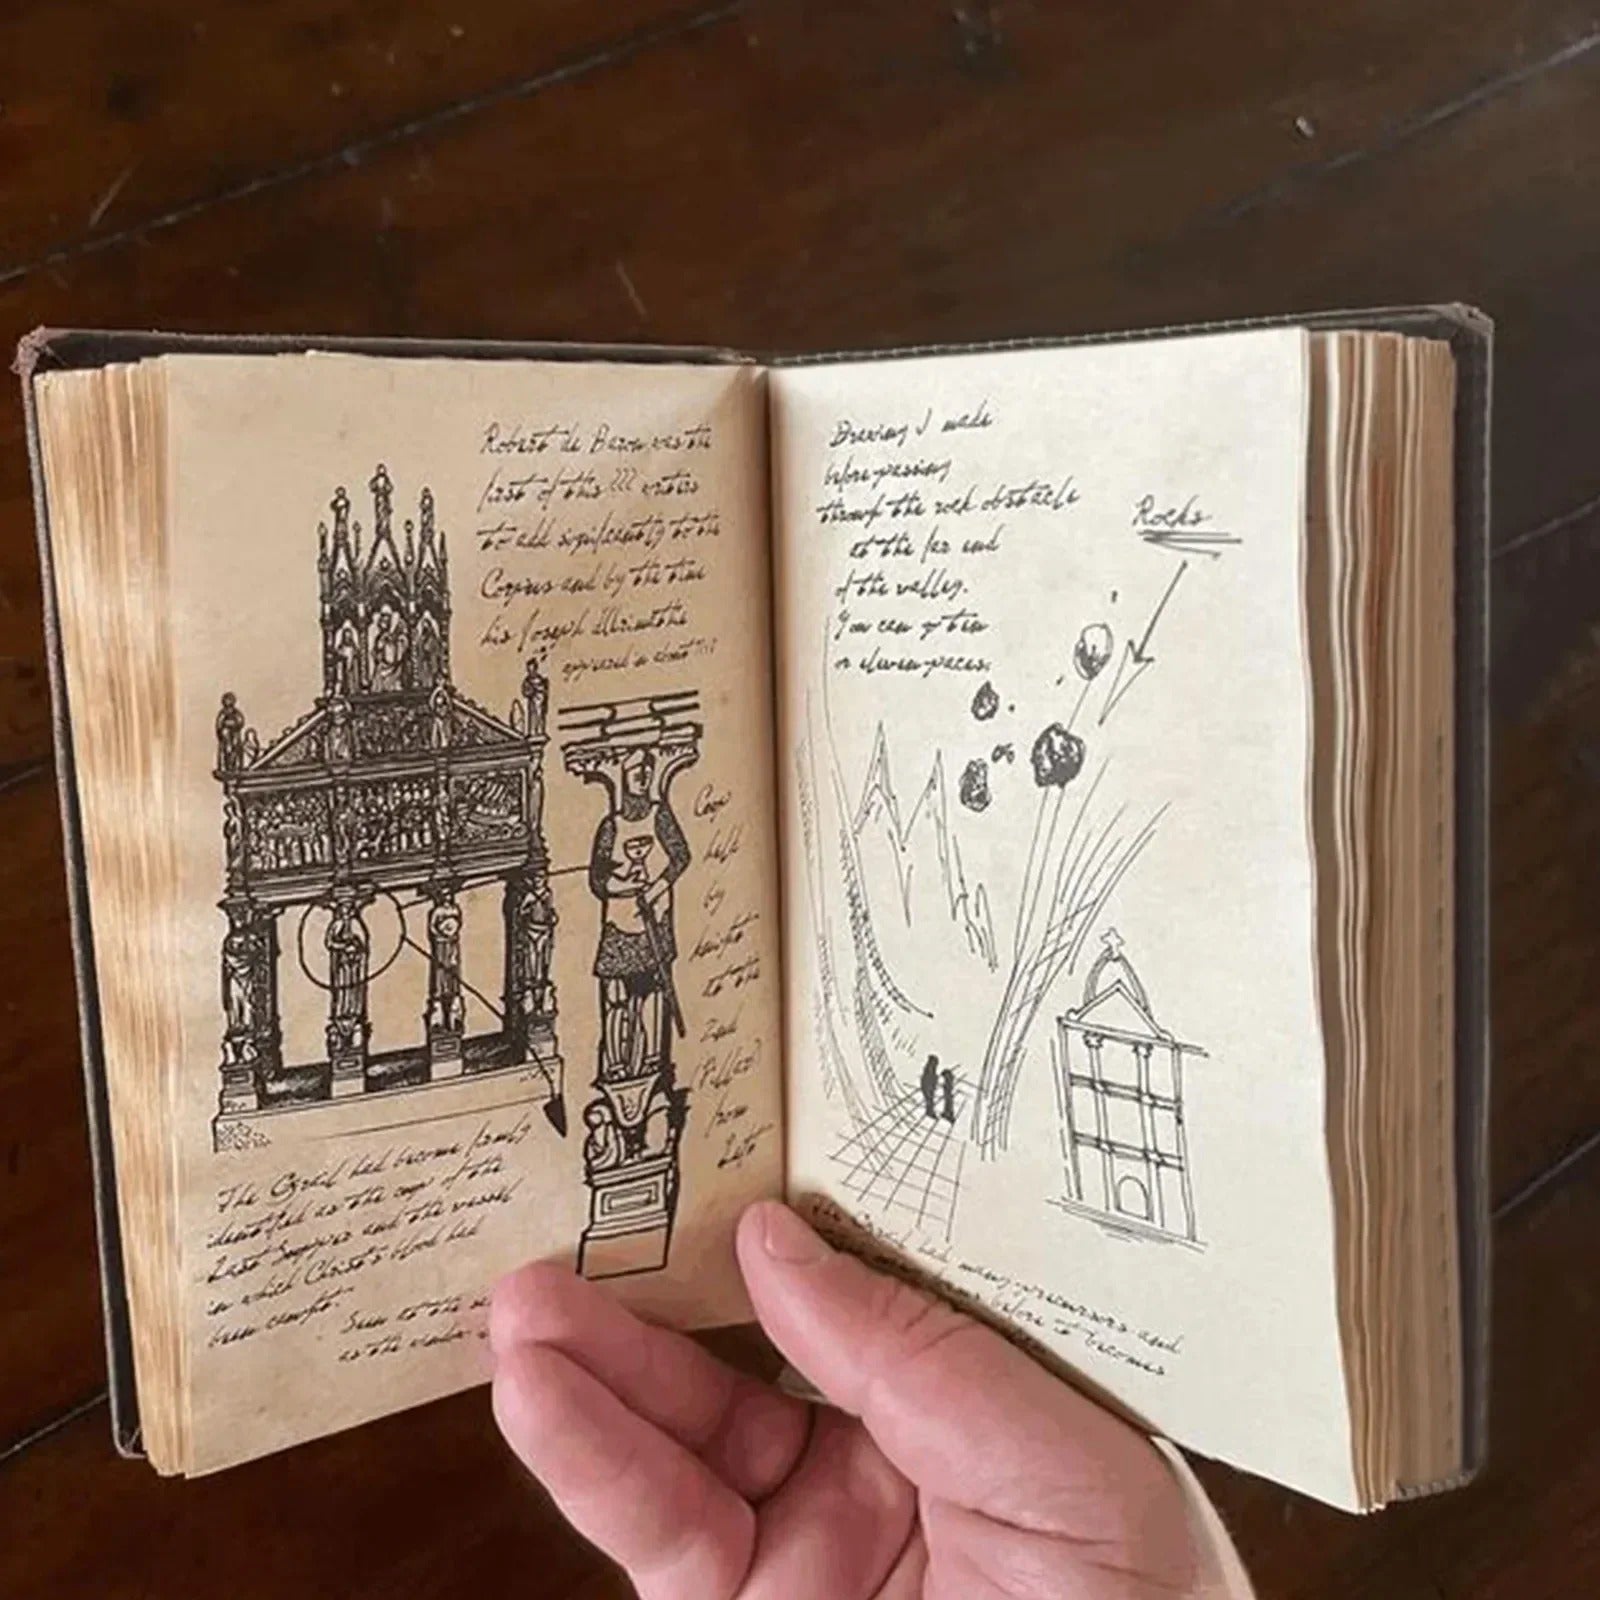 Robert de Boron was the
first of this ??? writers
to add significantly to the
Corpus and by the time
his Joseph d'Arimathe
appeared in about
Coop
held
by
knight
to the
2nd
(Pillar)
from
Left
The Grail had become firmly
identified as the coop of the
Last Supper and the vessel
in which Christ's blood had
been caught.
Seen to the
as the
Drawing I made
before passing
through the rock obstacle
at the far end
of the valley.
You can go ten
or eleven paces.
Rocks
The Grail had many precursors and
before it becomes